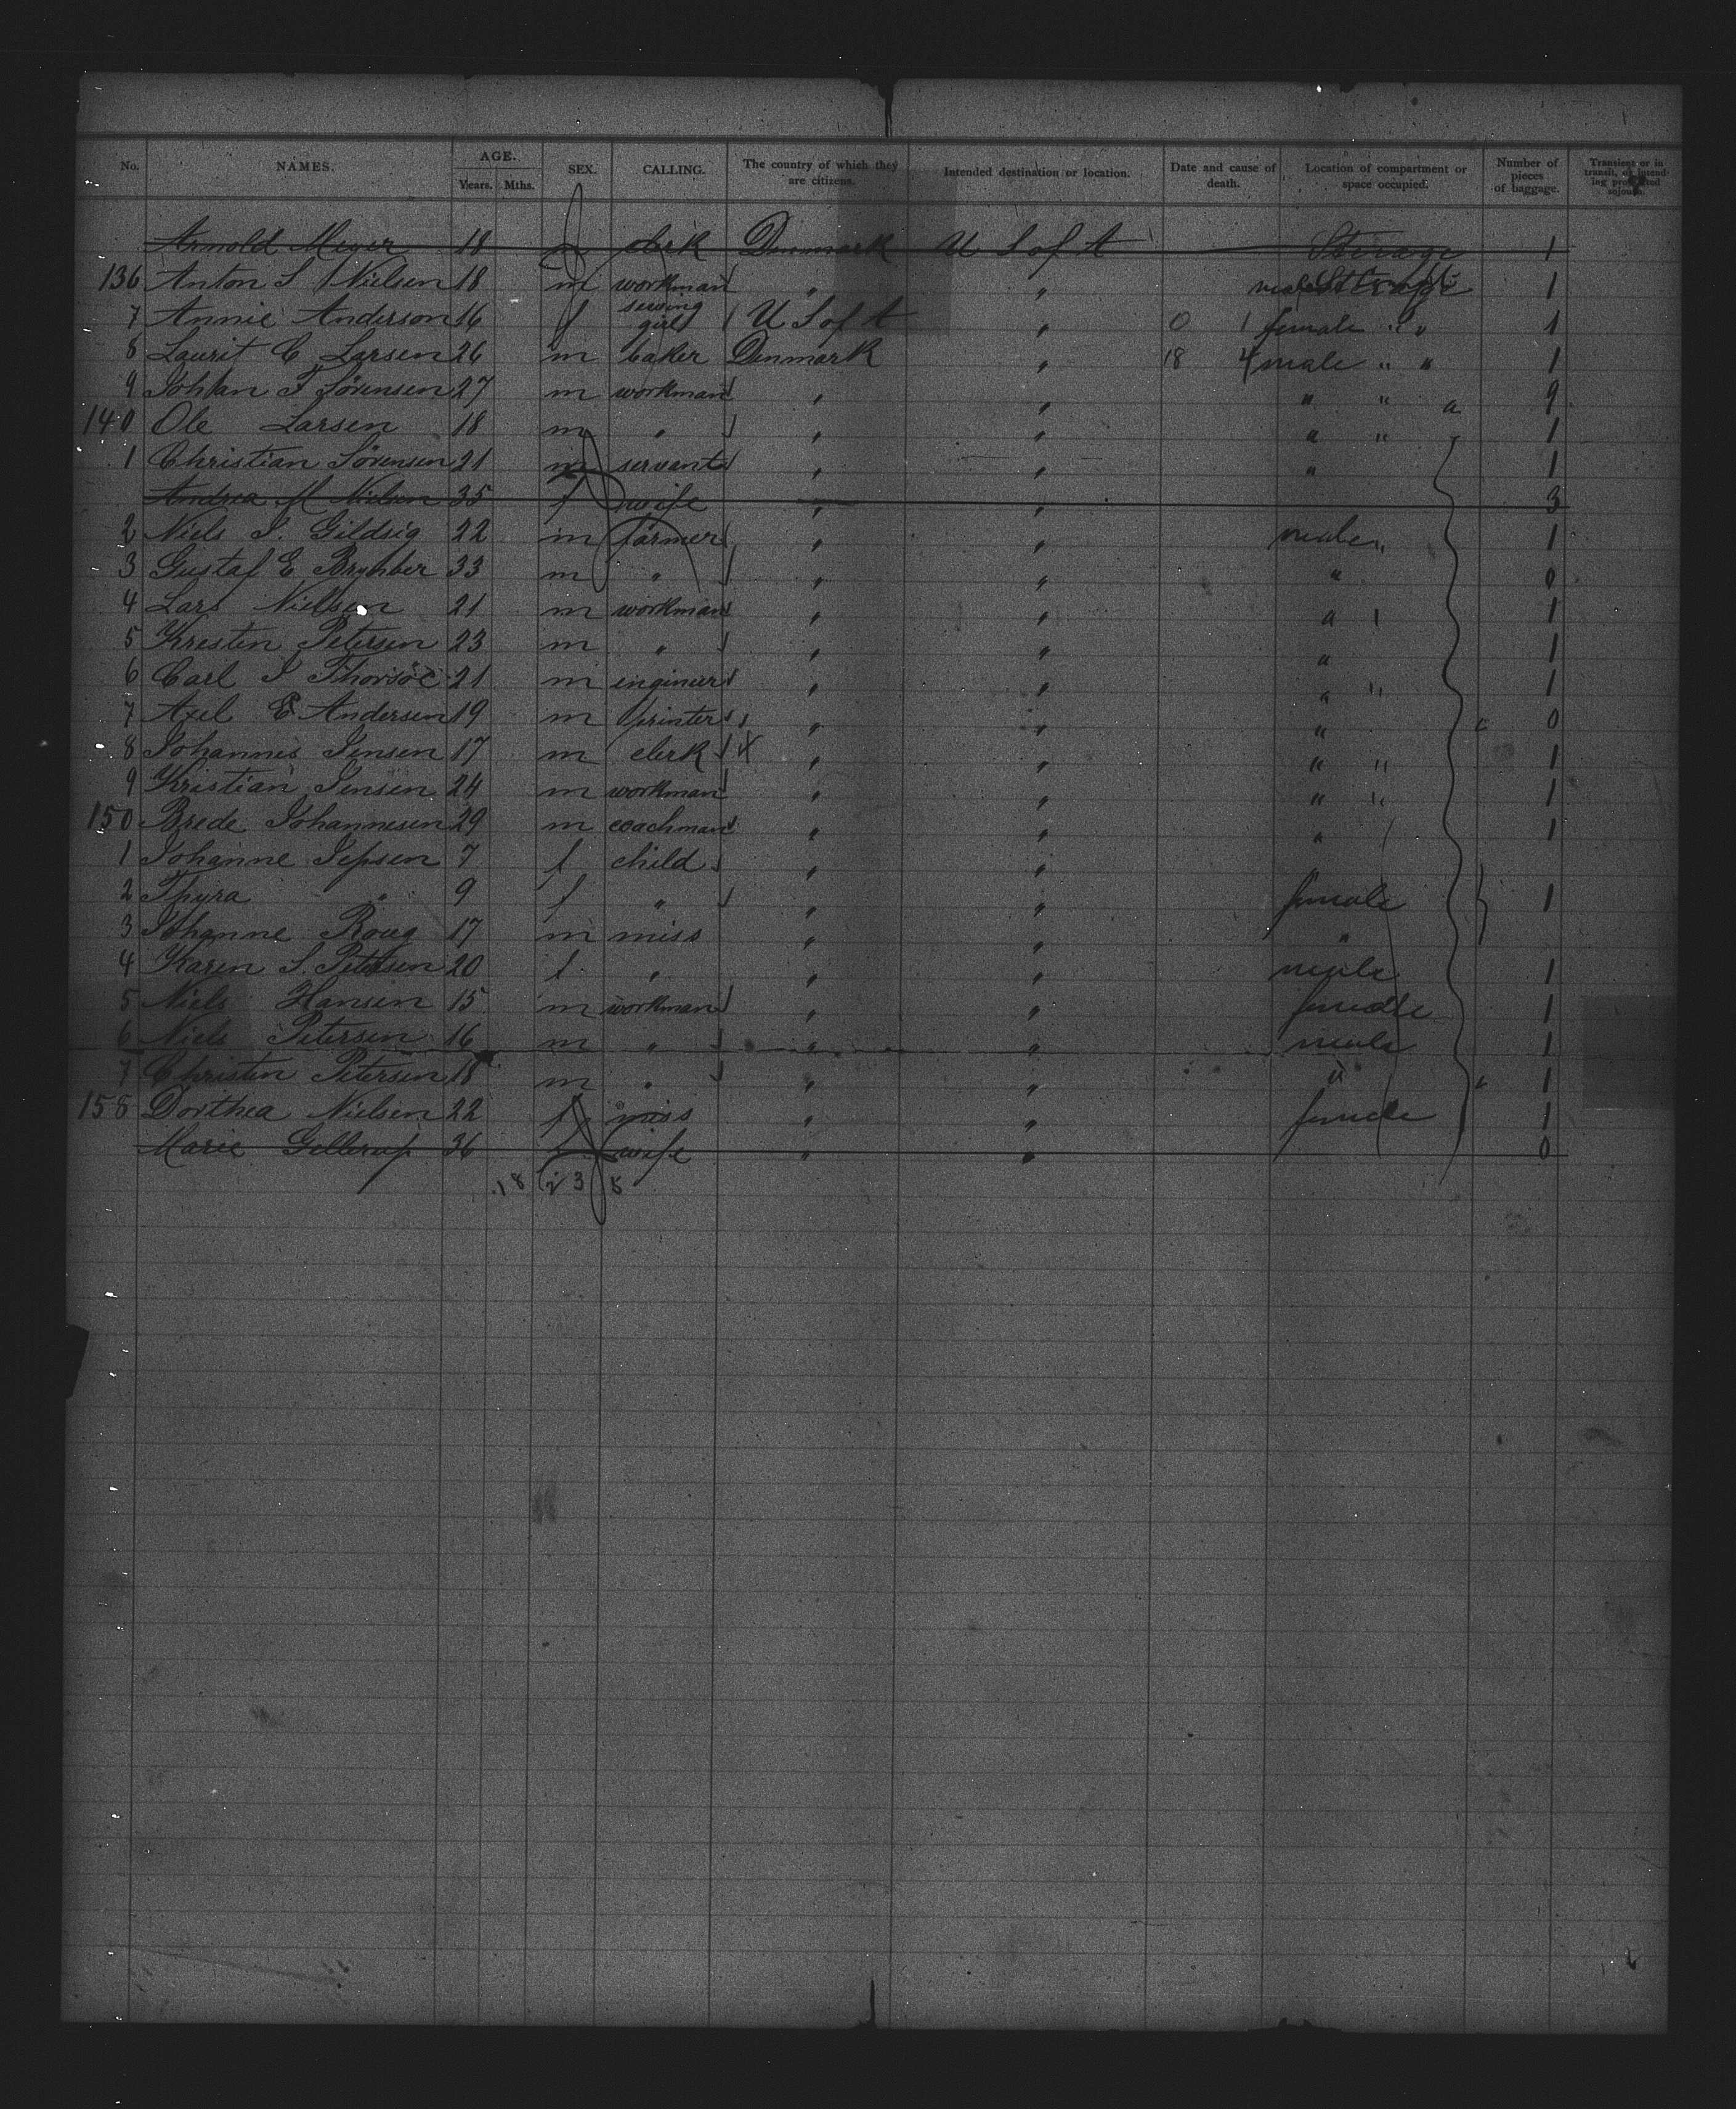 No. NAMES. AGE. Years. Mths. SEX. CALLING. The country of which they are citizens. Intended destination or location. Date and cause of death. Location of compartment or space occupied. Number of pieces of baggage. Transient or in transit, or intending protracted sojourn.
Arnold Meyer 18 clerk Denmark U S of A Steerage 1
136 Anton S Nielsen 18 m workman " " male Steerage 1
7 Annie Anderson 16 f sewing girl U S of A " 0 1 female " " 1
8 Laurit C Larsen 26 m baker Denmark " 18 4 male " " 1
9 Johan F Sörensen 27 m workman " " " " 9
140 Ole Larsen 18 m " " " " " 1
1 Christian Sörensen 21 m servant " " " 1
Andrea M Nielsen 35 f wife " " 3
2 Niels J. Gildsig 22 m farmer " " male " 1
3 Gustaf E 33 m " " " " 0
4 Lars Nielsen 21 m workman " " " 1
5 Kresten Petersen 23 m " " " " 1
6 Carl J Thorsöe 21 m engineer " " " " 1
7 Axel E Andersen 19 m printer " " " 0
8 Johannes Jensen 17 m clerk X " " " " 1
9 Kristian Jensen 24 m workman " " " " 1
150 Brede Johannesen 29 m coachman " " " 1
1 Johanne Jepsen 7 f child " "
2 Thyra " 9 f " " " female 1
3 Johanne Roug 17 m miss " " "
4 Karen S. Petersen 20 f " " " male 1
5 Niels Hansen 15 m workman " " female 1
6 Niels Petersen 16 m " " " male 1
7 Christen Petersen 18 m " " " " 1
158 Dorthea Nielsen 22 f miss " " female 1
Marie Gellerup 36 wife " " 0
18 23 5